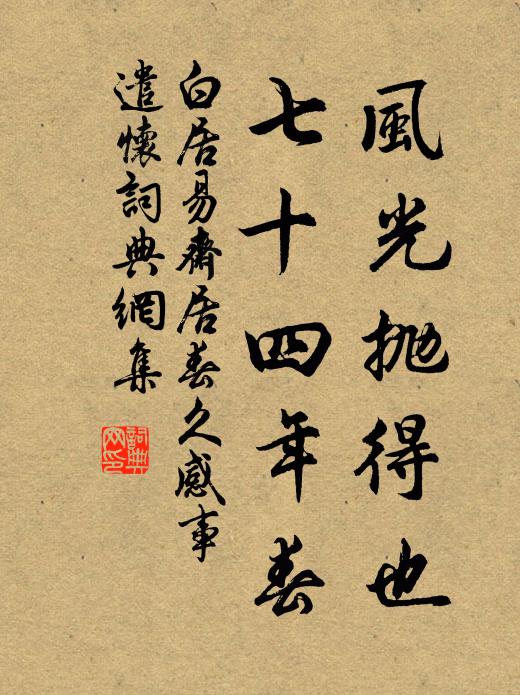 風光抛得也
七十四年春
白居易齋居春久感事
遣懷詞典網集
詞典
网印